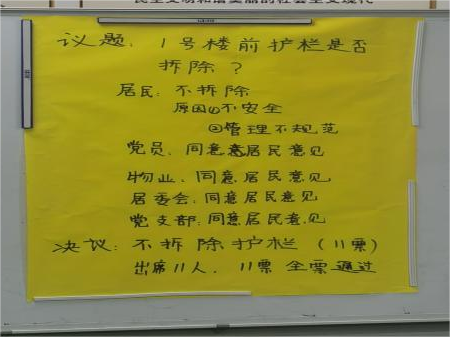 议题：1号楼前护栏是否
拆除？
居民：不拆除
原因①不安全
②管理不规范
党员：同意意居民意见
物业：同意居民意见
居委会：同意居民意见
党支部：同意居民意见
决议：不拆除护栏（11票）
出席11人，11票全票通过